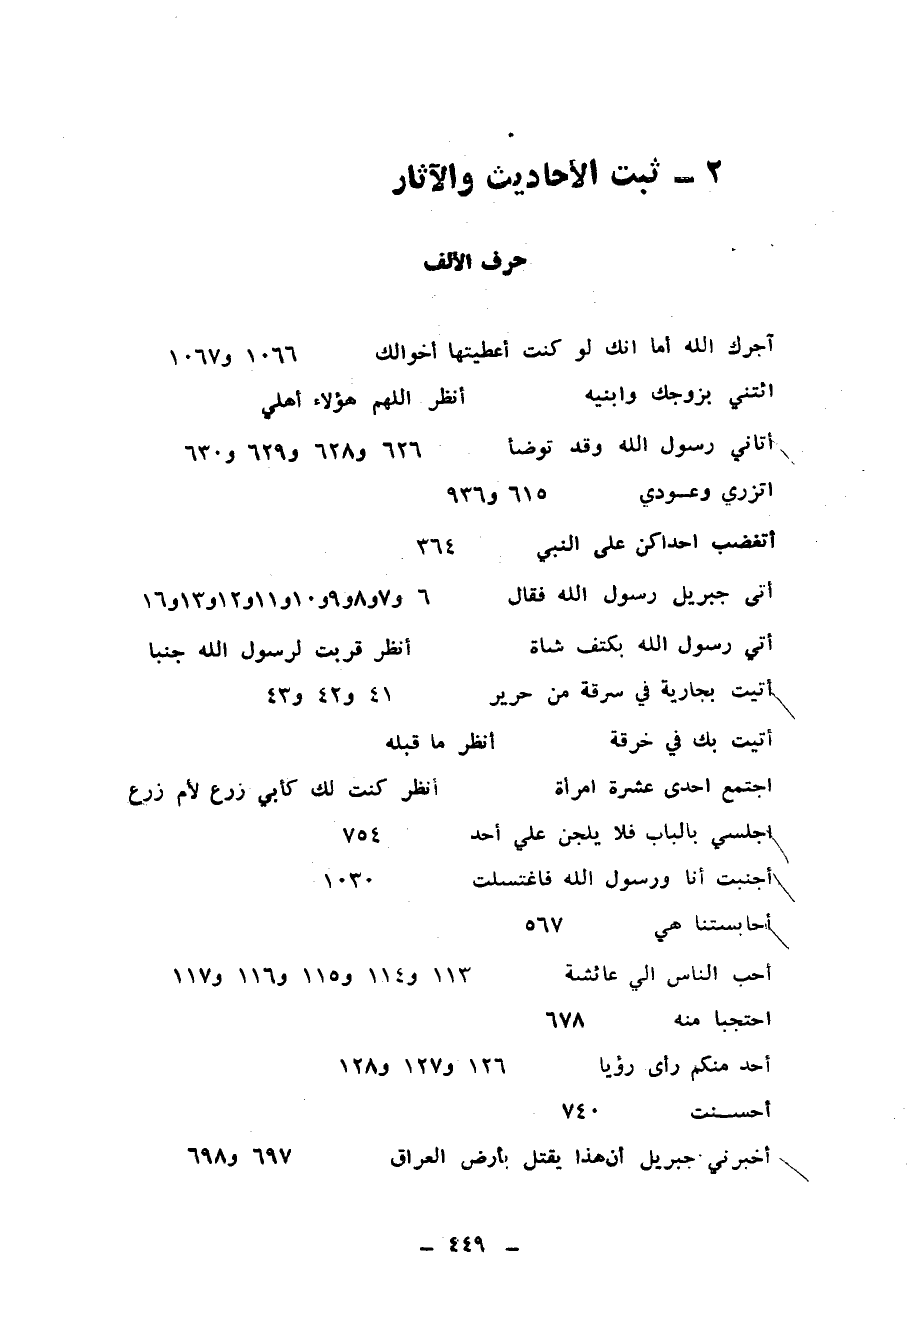 ٢ ـ ثبت الأحاديث والآثار
حرف الألف
آجرك الله أما انك لو كنت أعطيتها أخوالك ١٠٦٦ و١٠٦٧
ائتني بزوجك وابنيه أنظر اللهم هؤلاء أهلي
أتاني رسول الله وقد توضأ ٦٢٦ و٦٢٨ و٦٢٩ و٦٣٠
اتزري وعـودي ٦١٥ و٩٣٦
أتغضب احداكن على النبي ٣٦٤
أتى جبريل رسول الله فقال ٦ و٧و٨و٩و١٠و١١و١٢و١٣و١٦
أتي رسول الله بكتف شاة أنظر قربت لرسول الله جنبا
أتيت بجارية في سرقة من حرير ٤١ و٤٢ و٤٣
أتيت بك في خرقة أنظر ما قبله
اجتمع احدى عشرة امرأة أنظر كنت لك كأبي زرع لأم زرع
اجلسي بالباب فلا يلجن علي أحد ٧٥٤
أجنبت أنا ورسول الله فاغتسلت ١٠٣٠
أحابستنا هي ٥٦٧
أحب الناس الي عائشة ١١٣ و١١٤ و١١٥ و١١٦ و١١٧
احتجبا منه ٦٧٨
أحد منكم رأى رؤيا ١٢٦ و١٢٧ و١٢٨
أحســنت ٧٤٠
أخبرني جبريل أن هذا يقتل بأرض العراق ٦٩٧ و٦٩٨
ـ ٤٤٩ ـ